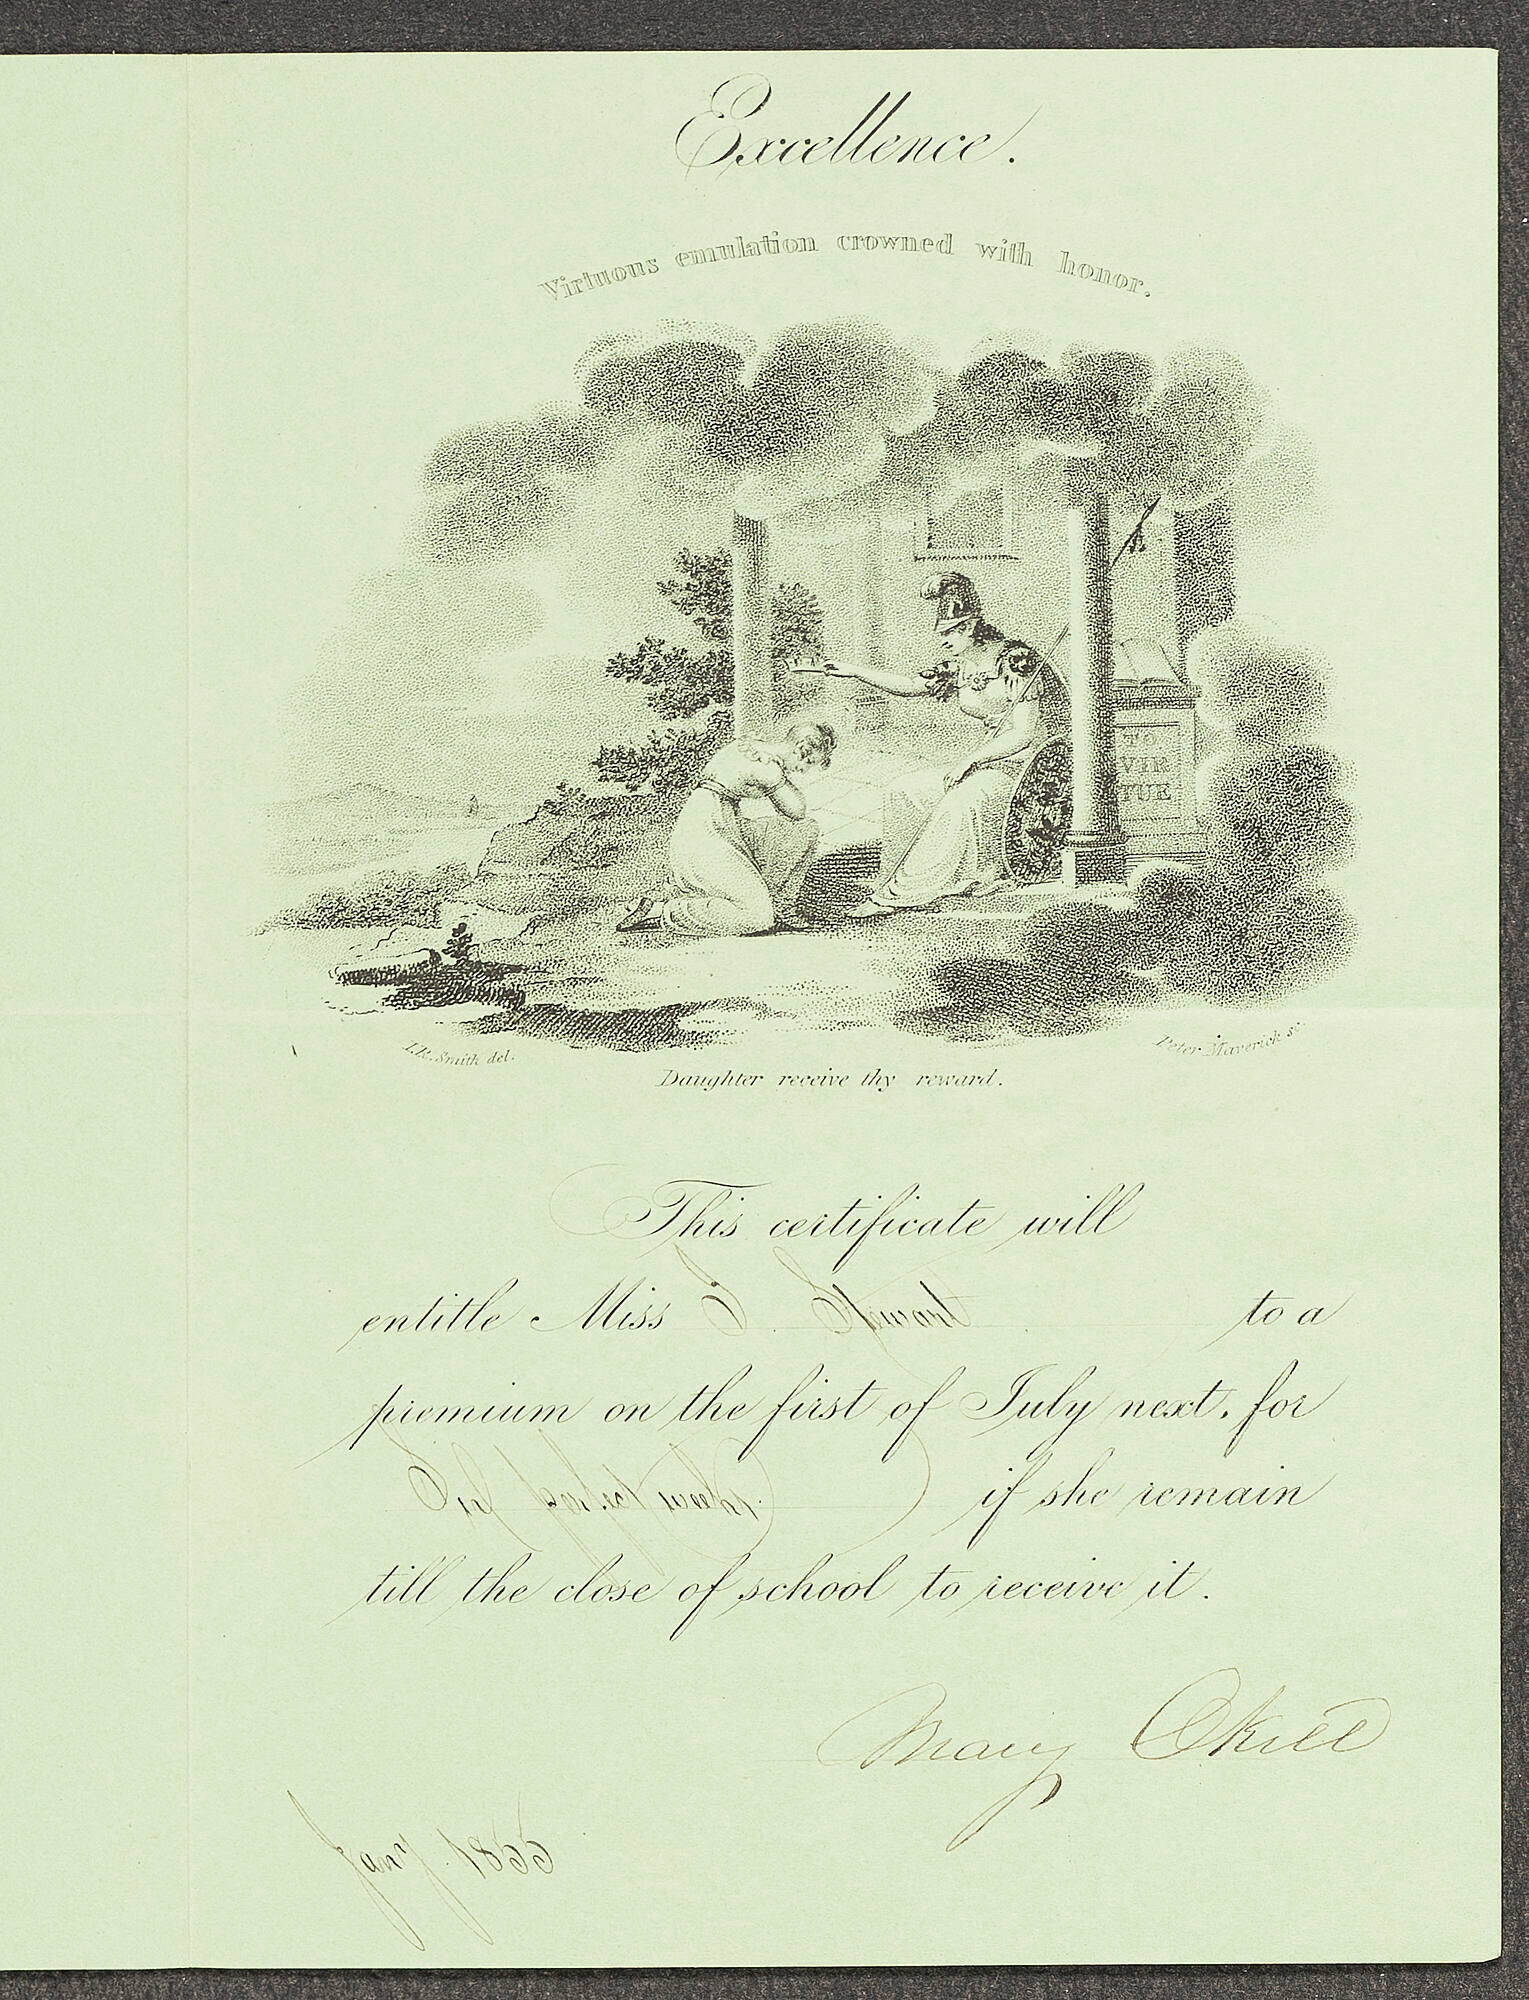 Excellence.
Virtuous emulation crowned with honor.
TO
VIR
TUE
I.R. Smith del.
Peter Maverick sc.
Daughter receive thy reward.
This certificate will
entitle Miss J. Stewart to a
premium on the first of July next, for
perfect weeks. if she remain
till the close of school to receive it.
Mary Okill
Jany. 1855